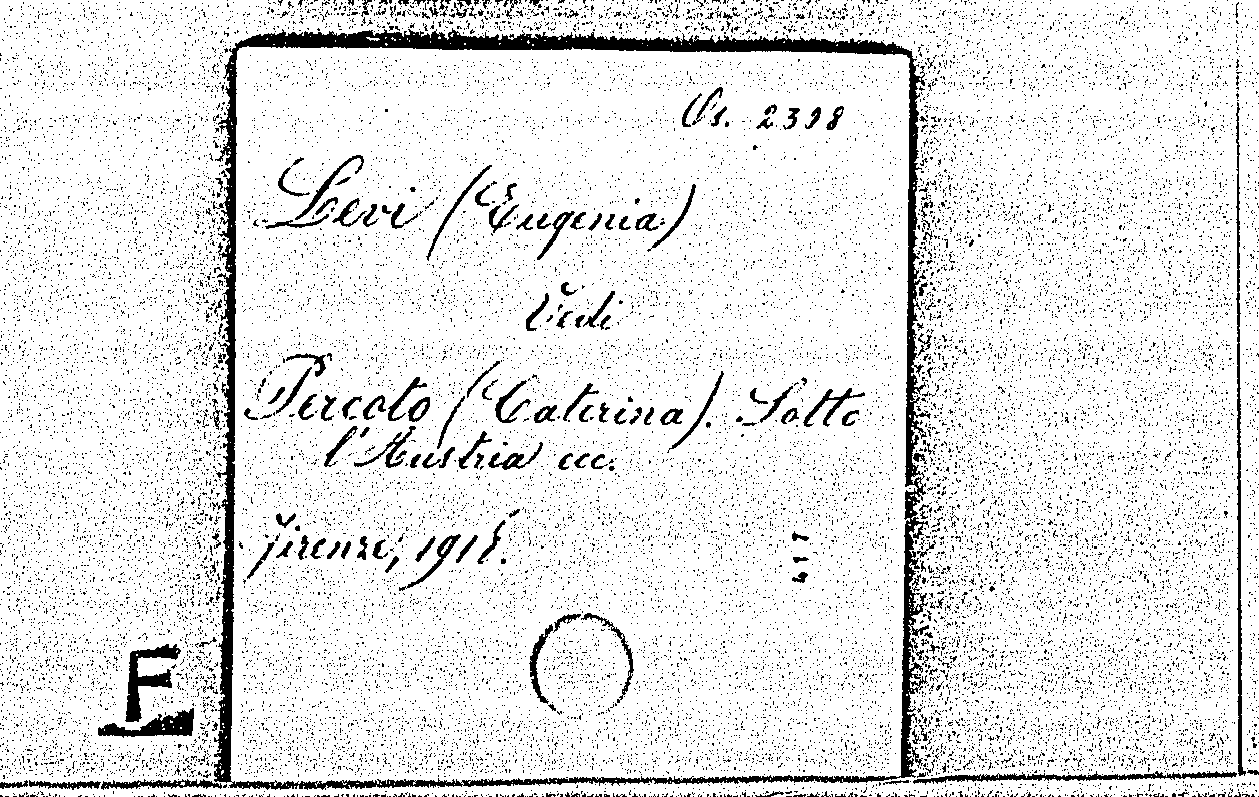 Os. 2398
Levi (Eugenia)
Vedi
Percoto (Caterina). Sotto
l'Austria ecc.
Firenze, 1915.
417
F